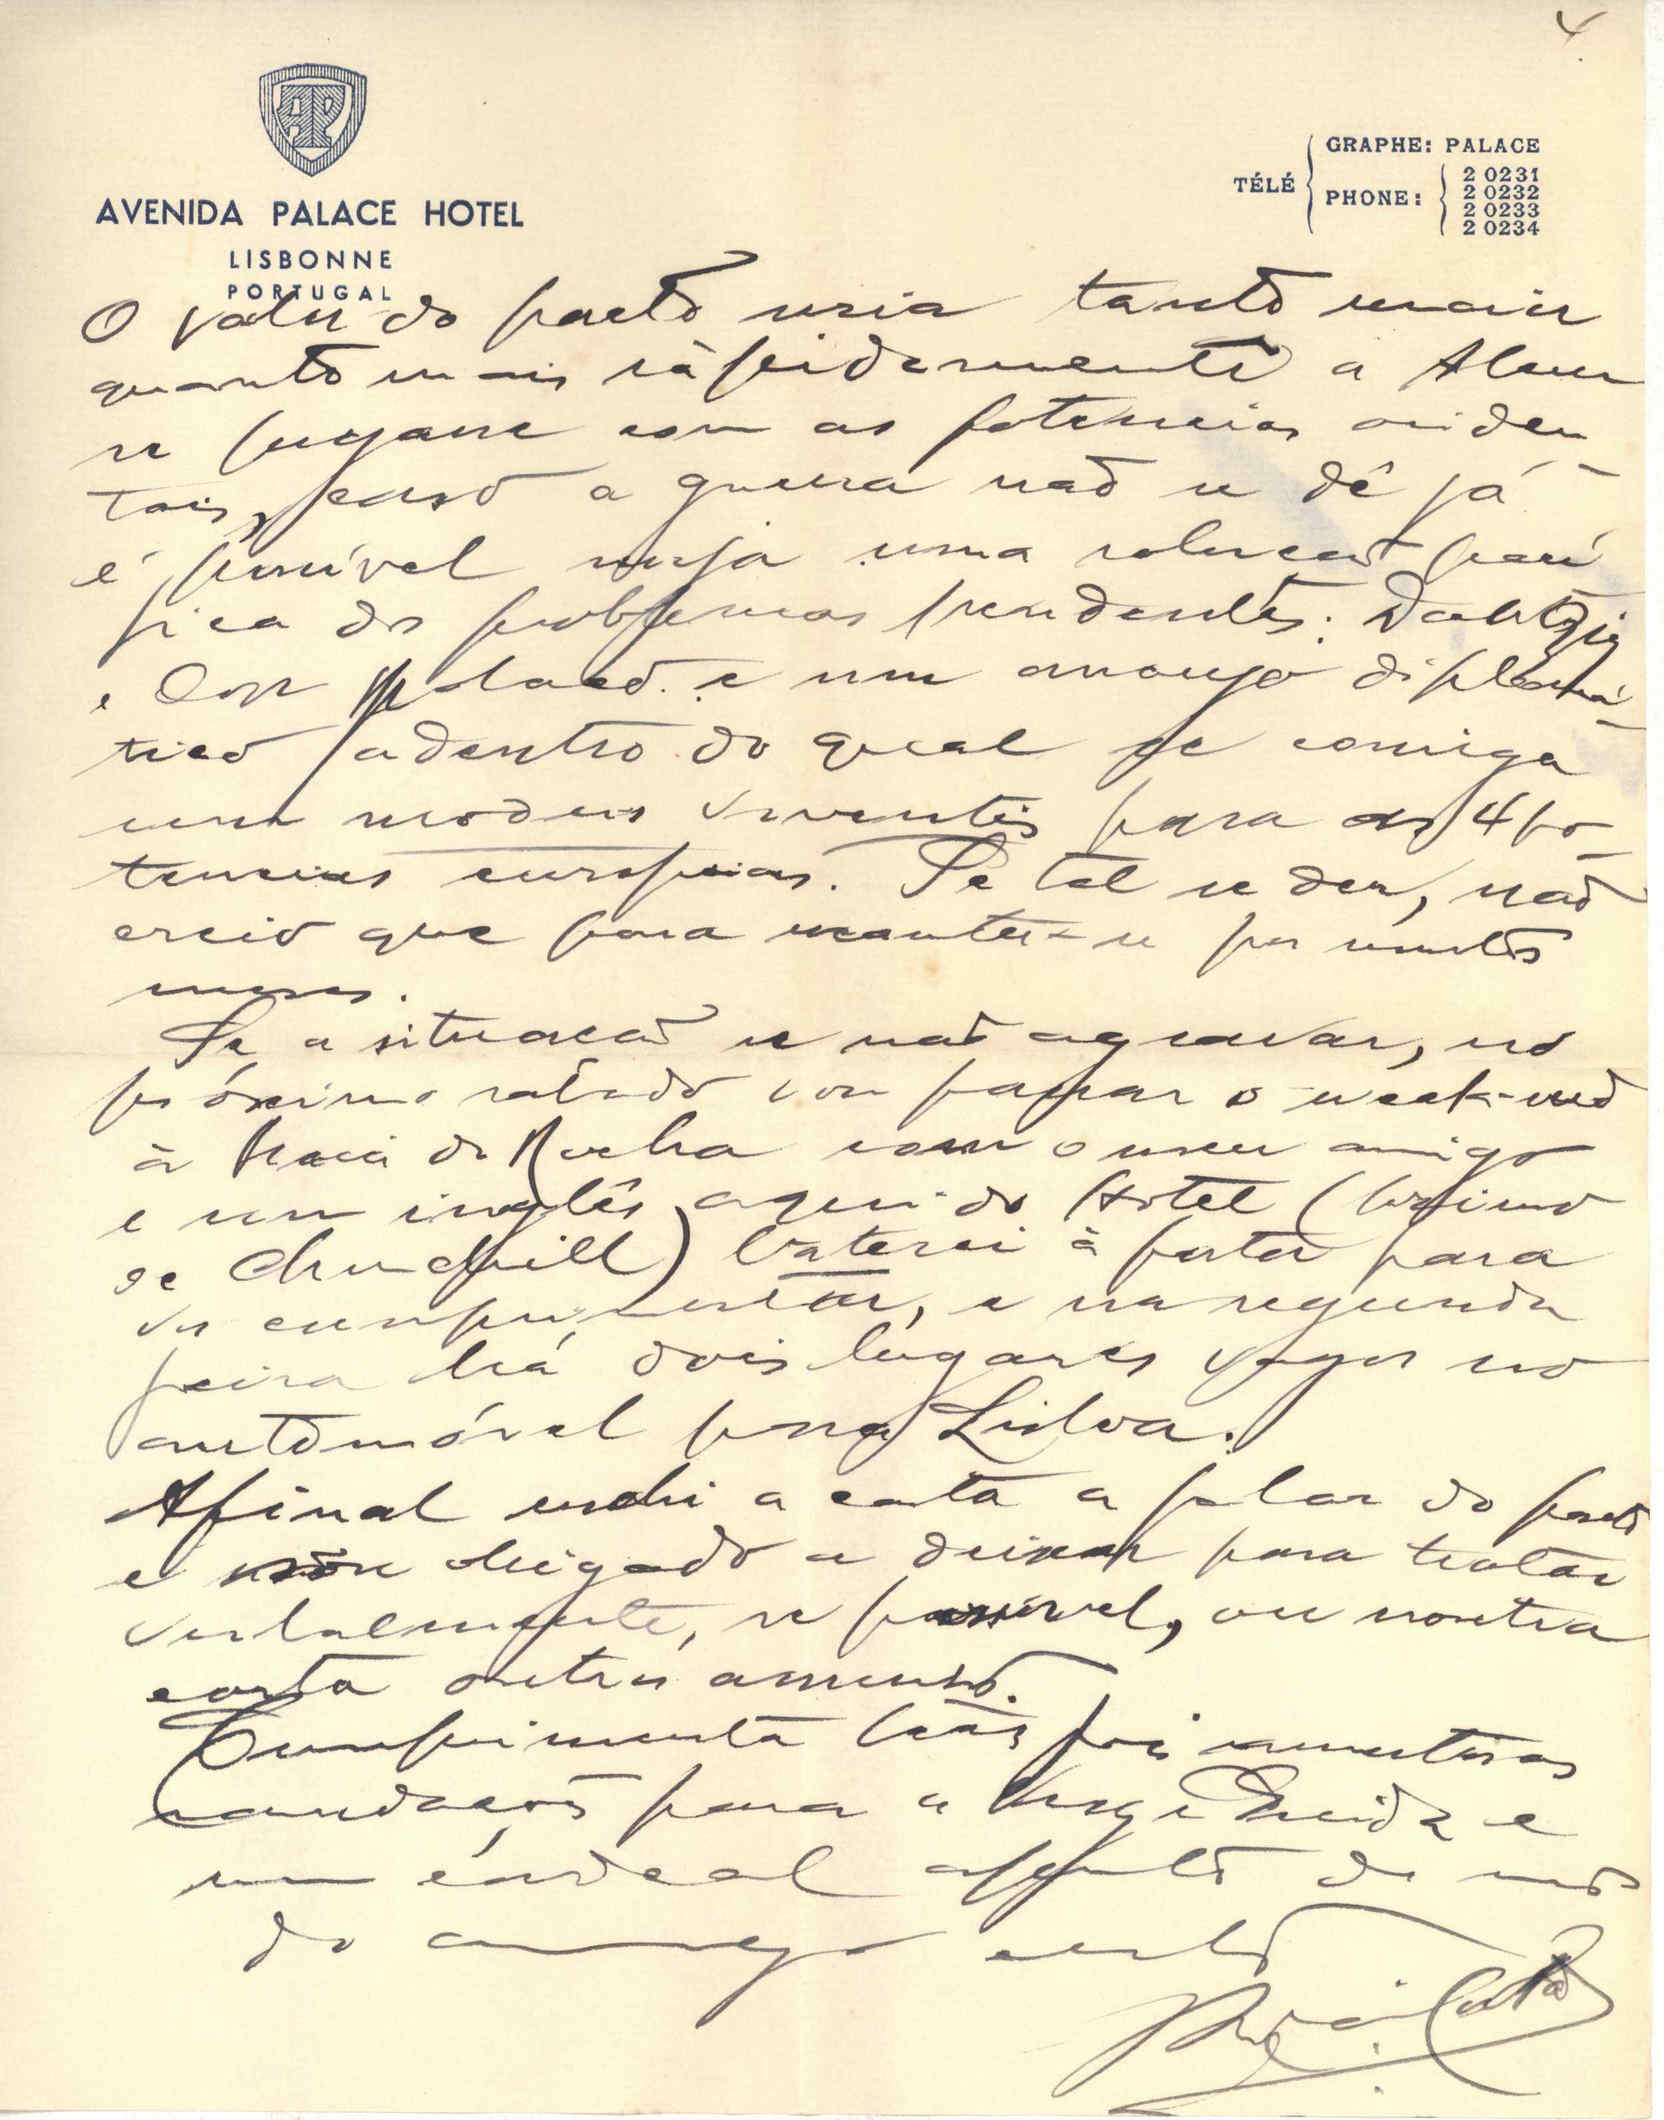 4
AP
AVENIDA PALACE HOTEL
LISBONNE
PORTUGAL
TÉLÉ
GRAPHE: PALACE
PHONE:
2 0231
2 0232
2 0233
2 0234
O valor do pacto seria tanto maior
quanto mais ràpidamente a Alem
se pegasse com as potencias ociden
tais, caso a guerra não se dê já
é possível surja uma solucão pací
fica dos problemas pendentes: Dantzig
e Corr polaco. e um arranjo diplomá-
tico adentro do qual se consiga
um modus viventis para as 4 po-
tencias europeias. Se tal se der, não
creio que para manter-se por muitos
meses.
Se a situacão se não agravar, no
próximo sabado vou passar o week-end
à Praia da Rocha com o meu amigo
e um inglês aqui do Hotel (primo
de Churchill) baterei à porta para
vos cumprimentar, e na segunda
feira há dois lugares vagos no
automóvel para Lisboa.
Afinal enchi a carta a falar do pacto
e obrigado a deixar para tratar
verbalmente, se possível, ou noutra
carta outros assuntos.
Cumprimenta teus pais
saudações para a e
um cordeal de
do amigo certo